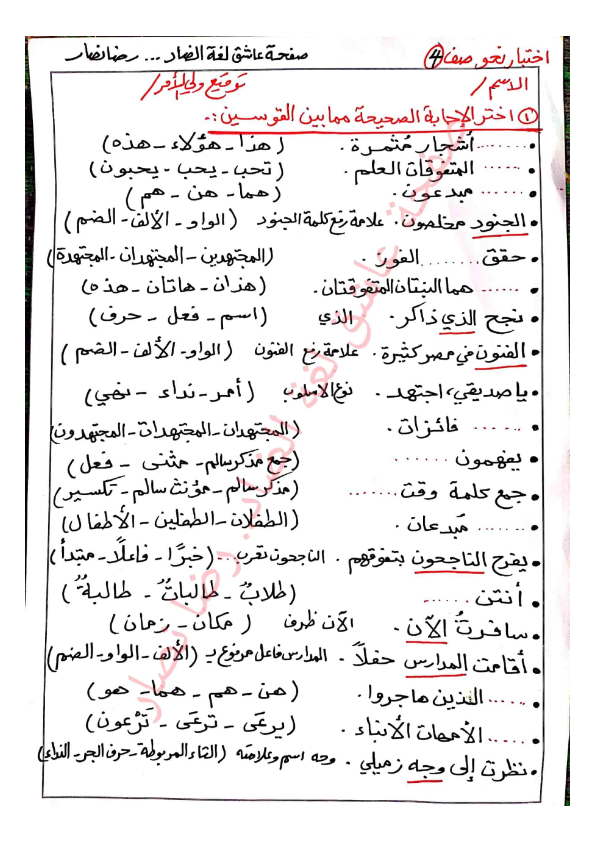 اختبار نحو صف ④ صفحة عاشق لغة الضاد ... رضا نصار
الاسم / توقيع ولي الأمر /
① اختر الإجابة الصحيحة مما بين القوسين :-
• ....... أشجار مُثمرة . (هذا - هؤلاء - هذه)
• ...... المتفوقات العلم . (تحب - يحب - يحبون)
• ...... مبدعون . (هما - هن - هم)
• الجنود مخلصون . علامة رفع كلمة الجنود (الواو - الألف - الضم)
• حقق ........ الفوز . (المجتهدين - المجتهدان - المجتهدة)
• ...... هما البنتان المتفوقتان . (هذان - هاتان - هذه)
• نجح الذي ذاكر . الذي (اسم - فعل - حرف)
• الفنون في مصر كثيرة . علامة رفع الفنون (الواو - الألف - الضم)
• يا صديقي، اجتهد . نوع الاسلوب (أمر - نداء - نهي)
• ...... فائزات . (المجتهدان - المجتهدات - المجتهدون)
• يفهمون ...... (جمع مذكر سالم - مثنى - فعل)
• جمع كلمة وقت ....... (مذكر سالم - مؤنث سالم - تكسير)
• ....... مُبدعان . (الطفلان - الطفلين - الأطفال)
• يفرح الناجحون بتفوقهم . الناجحون تعرب... (خبرًا - فاعلًا - مبتدأ)
• أنتن ...... (طلابٌ - طالباتٌ - طالبةٌ)
• سافرتُ الآن . الآن ظرف (مكان - زمان)
• أقامت المدارس حفلاً . المدارس فاعل مرفوع بـ (الألف - الواو - الضم)
• ...... الذين هاجروا . (هن - هم - هما - هو)
• ...... الأمهات الأبناء . (يرعَى - ترعَى - تَرْعون)
• نظرت إلى وجه زميلي . وجه اسم وعلامته (التاء المربوطة - حرف الجر - النداء)
صفحة عاشق لغة الضاد . رضا نصار